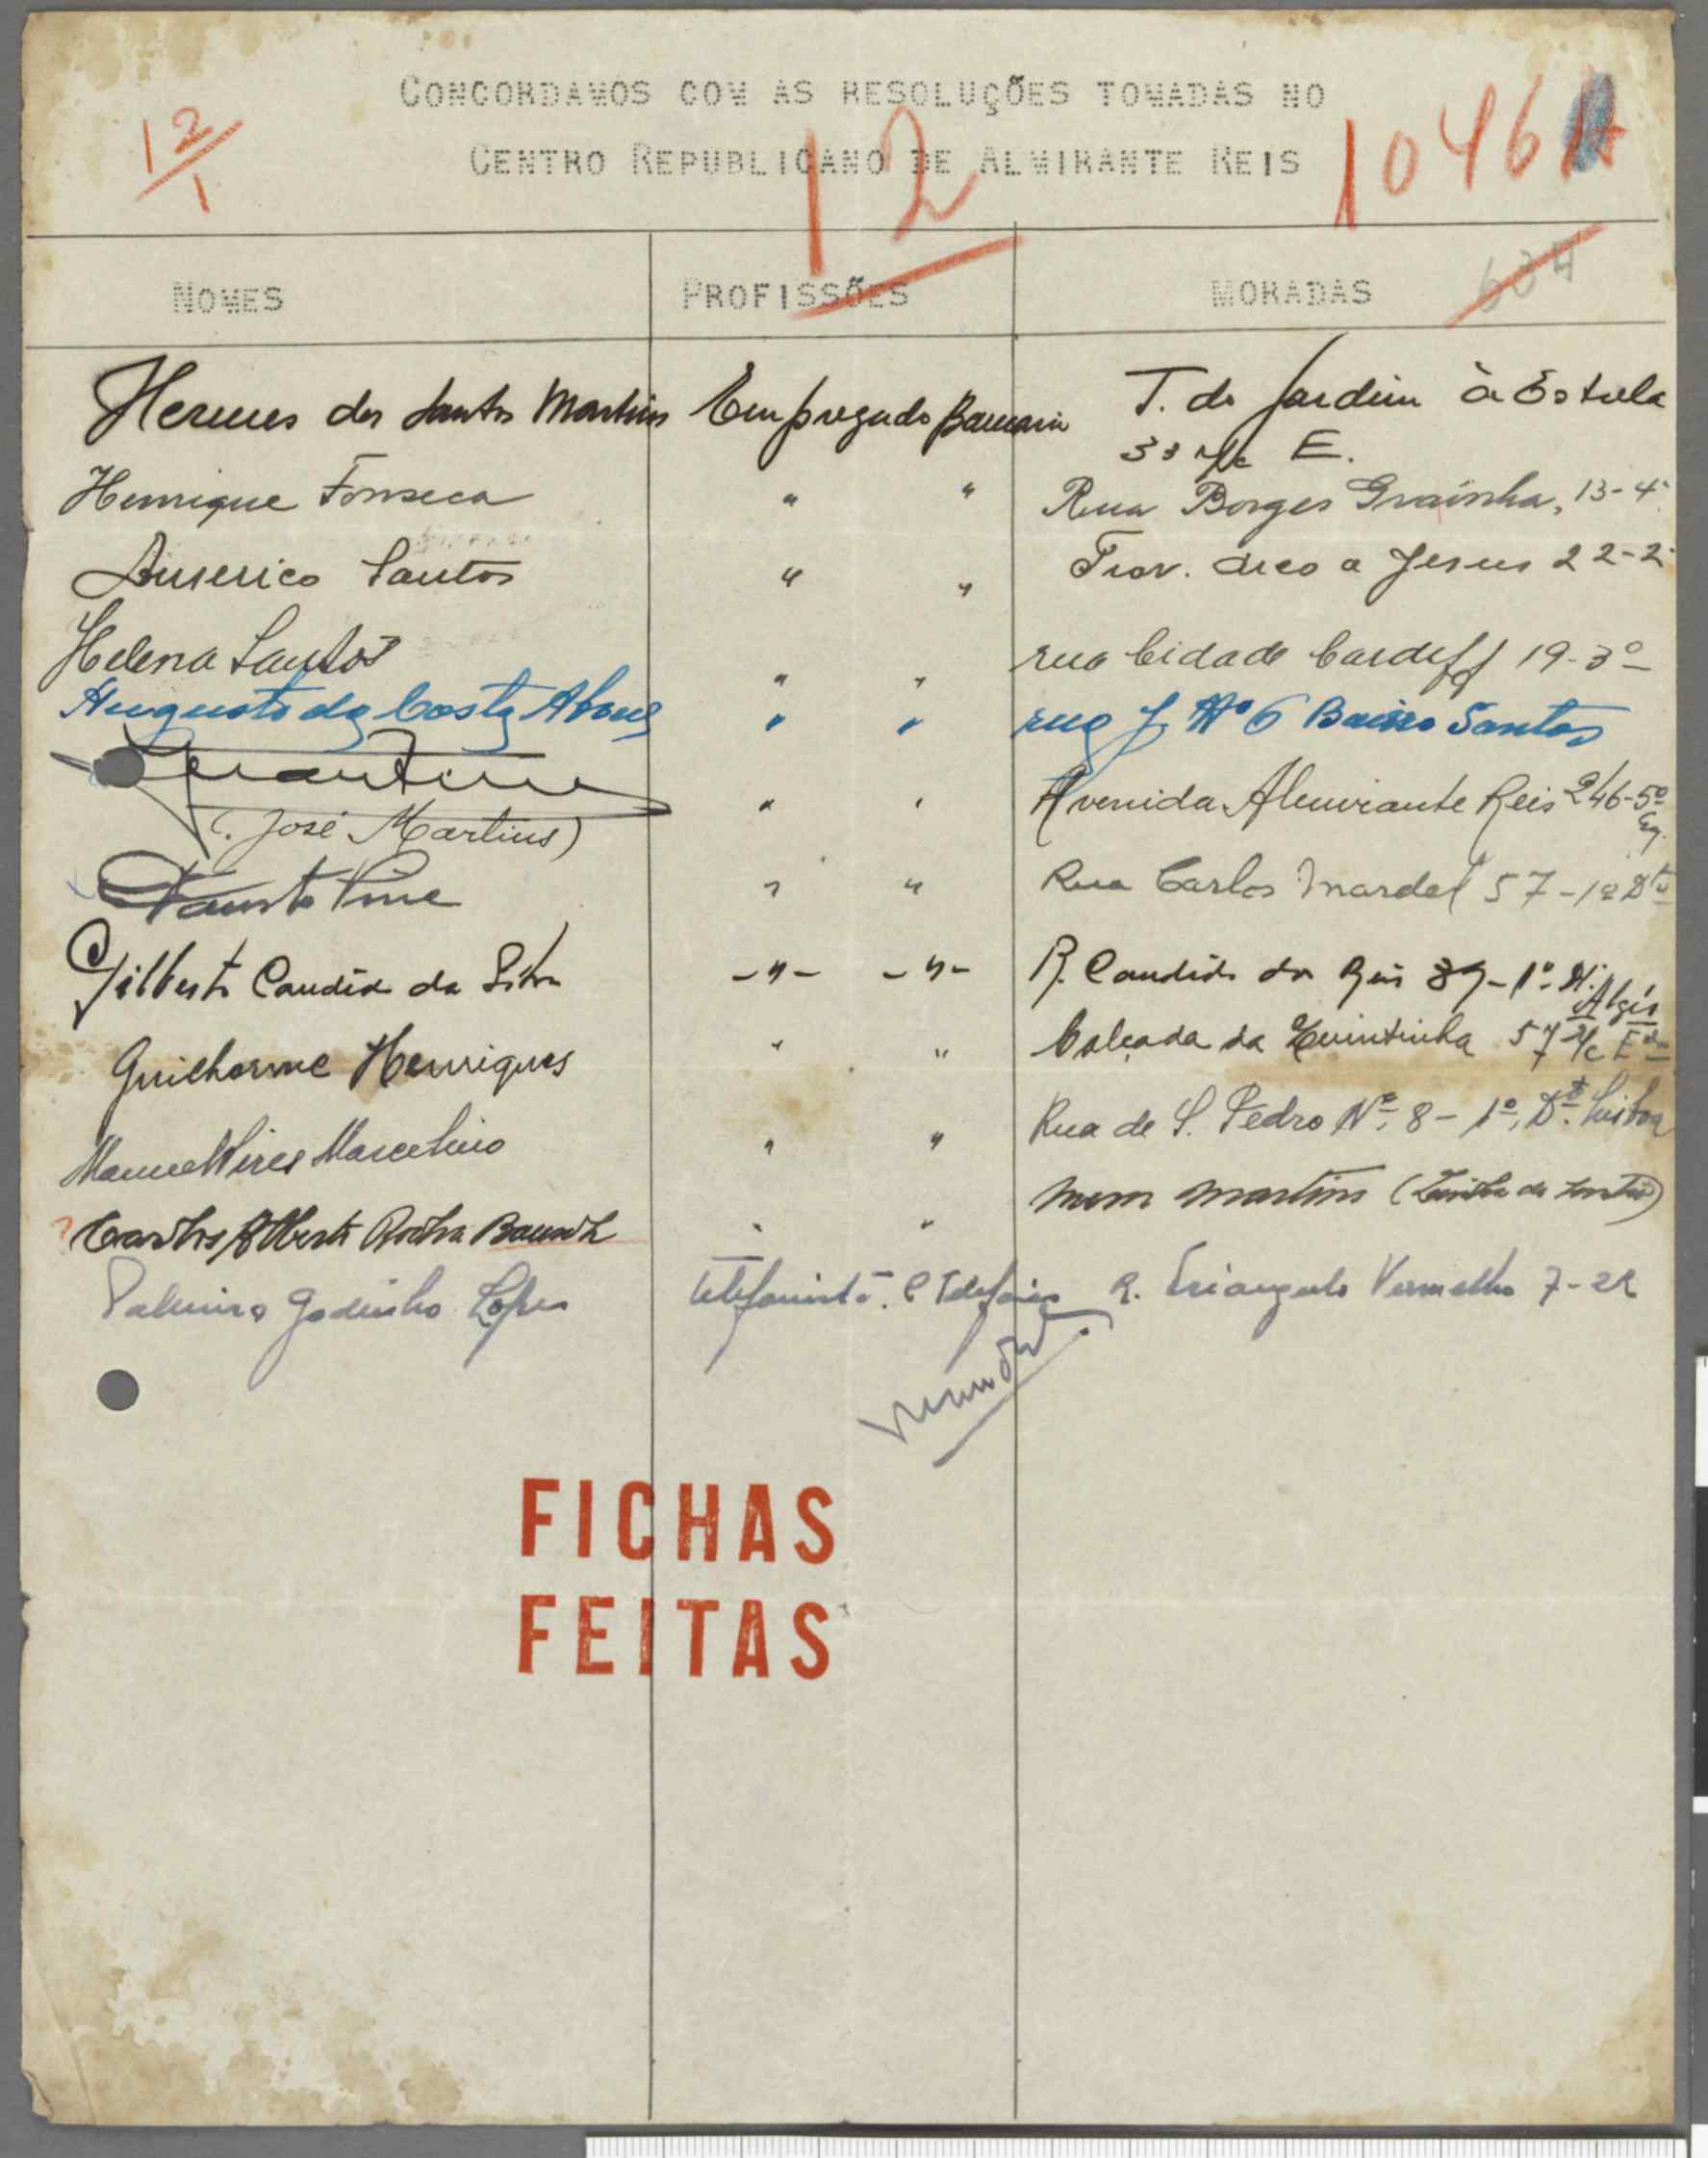 CONCORDAMOS COM AS RESOLUÇÕES TOMADAS NO
12/1
CENTRO REPUBLICANO DE ALMIRANTE REIS
12
1046
NOMES PROFISSÕES MORADAS 634
Hermes dos Santos Martins Empregado Bancario T. do Jardim à Estrela
33 r/c E.
Henrique Fonseca " " Rua Borges Grainha, 13-4º
Americo Santos " " Trav. Arco a Jesus 22-2º
Helena Santos " " rua Cidade Cardiff 19-3º
Augusto da Costa Abreu " " rua J Nº 6 Bairro Santos
" " Avenida Almirante Reis 246-5º
Eq.
(José Martins)
Fausto " " Rua Carlos Mardel 57-1º Dto
Gilberto Candido da Silva -"- -"- R. Candido dos Reis 89-1º Dt.
Algés
Guilherme Henriques " " Calçada da Quintinha 57 r/c Edo
Manuel Pires Marcelino " " Rua de S. Pedro Nº 8-1º, Dto. Lisboa
Carlos Alberto Rocha " " Mem Martins (Linha de Sintra)
Palmira Godinho Lopes telefonista C. Telefones R. Triangulo Vermelho 7-2º
FICHAS
FEITAS